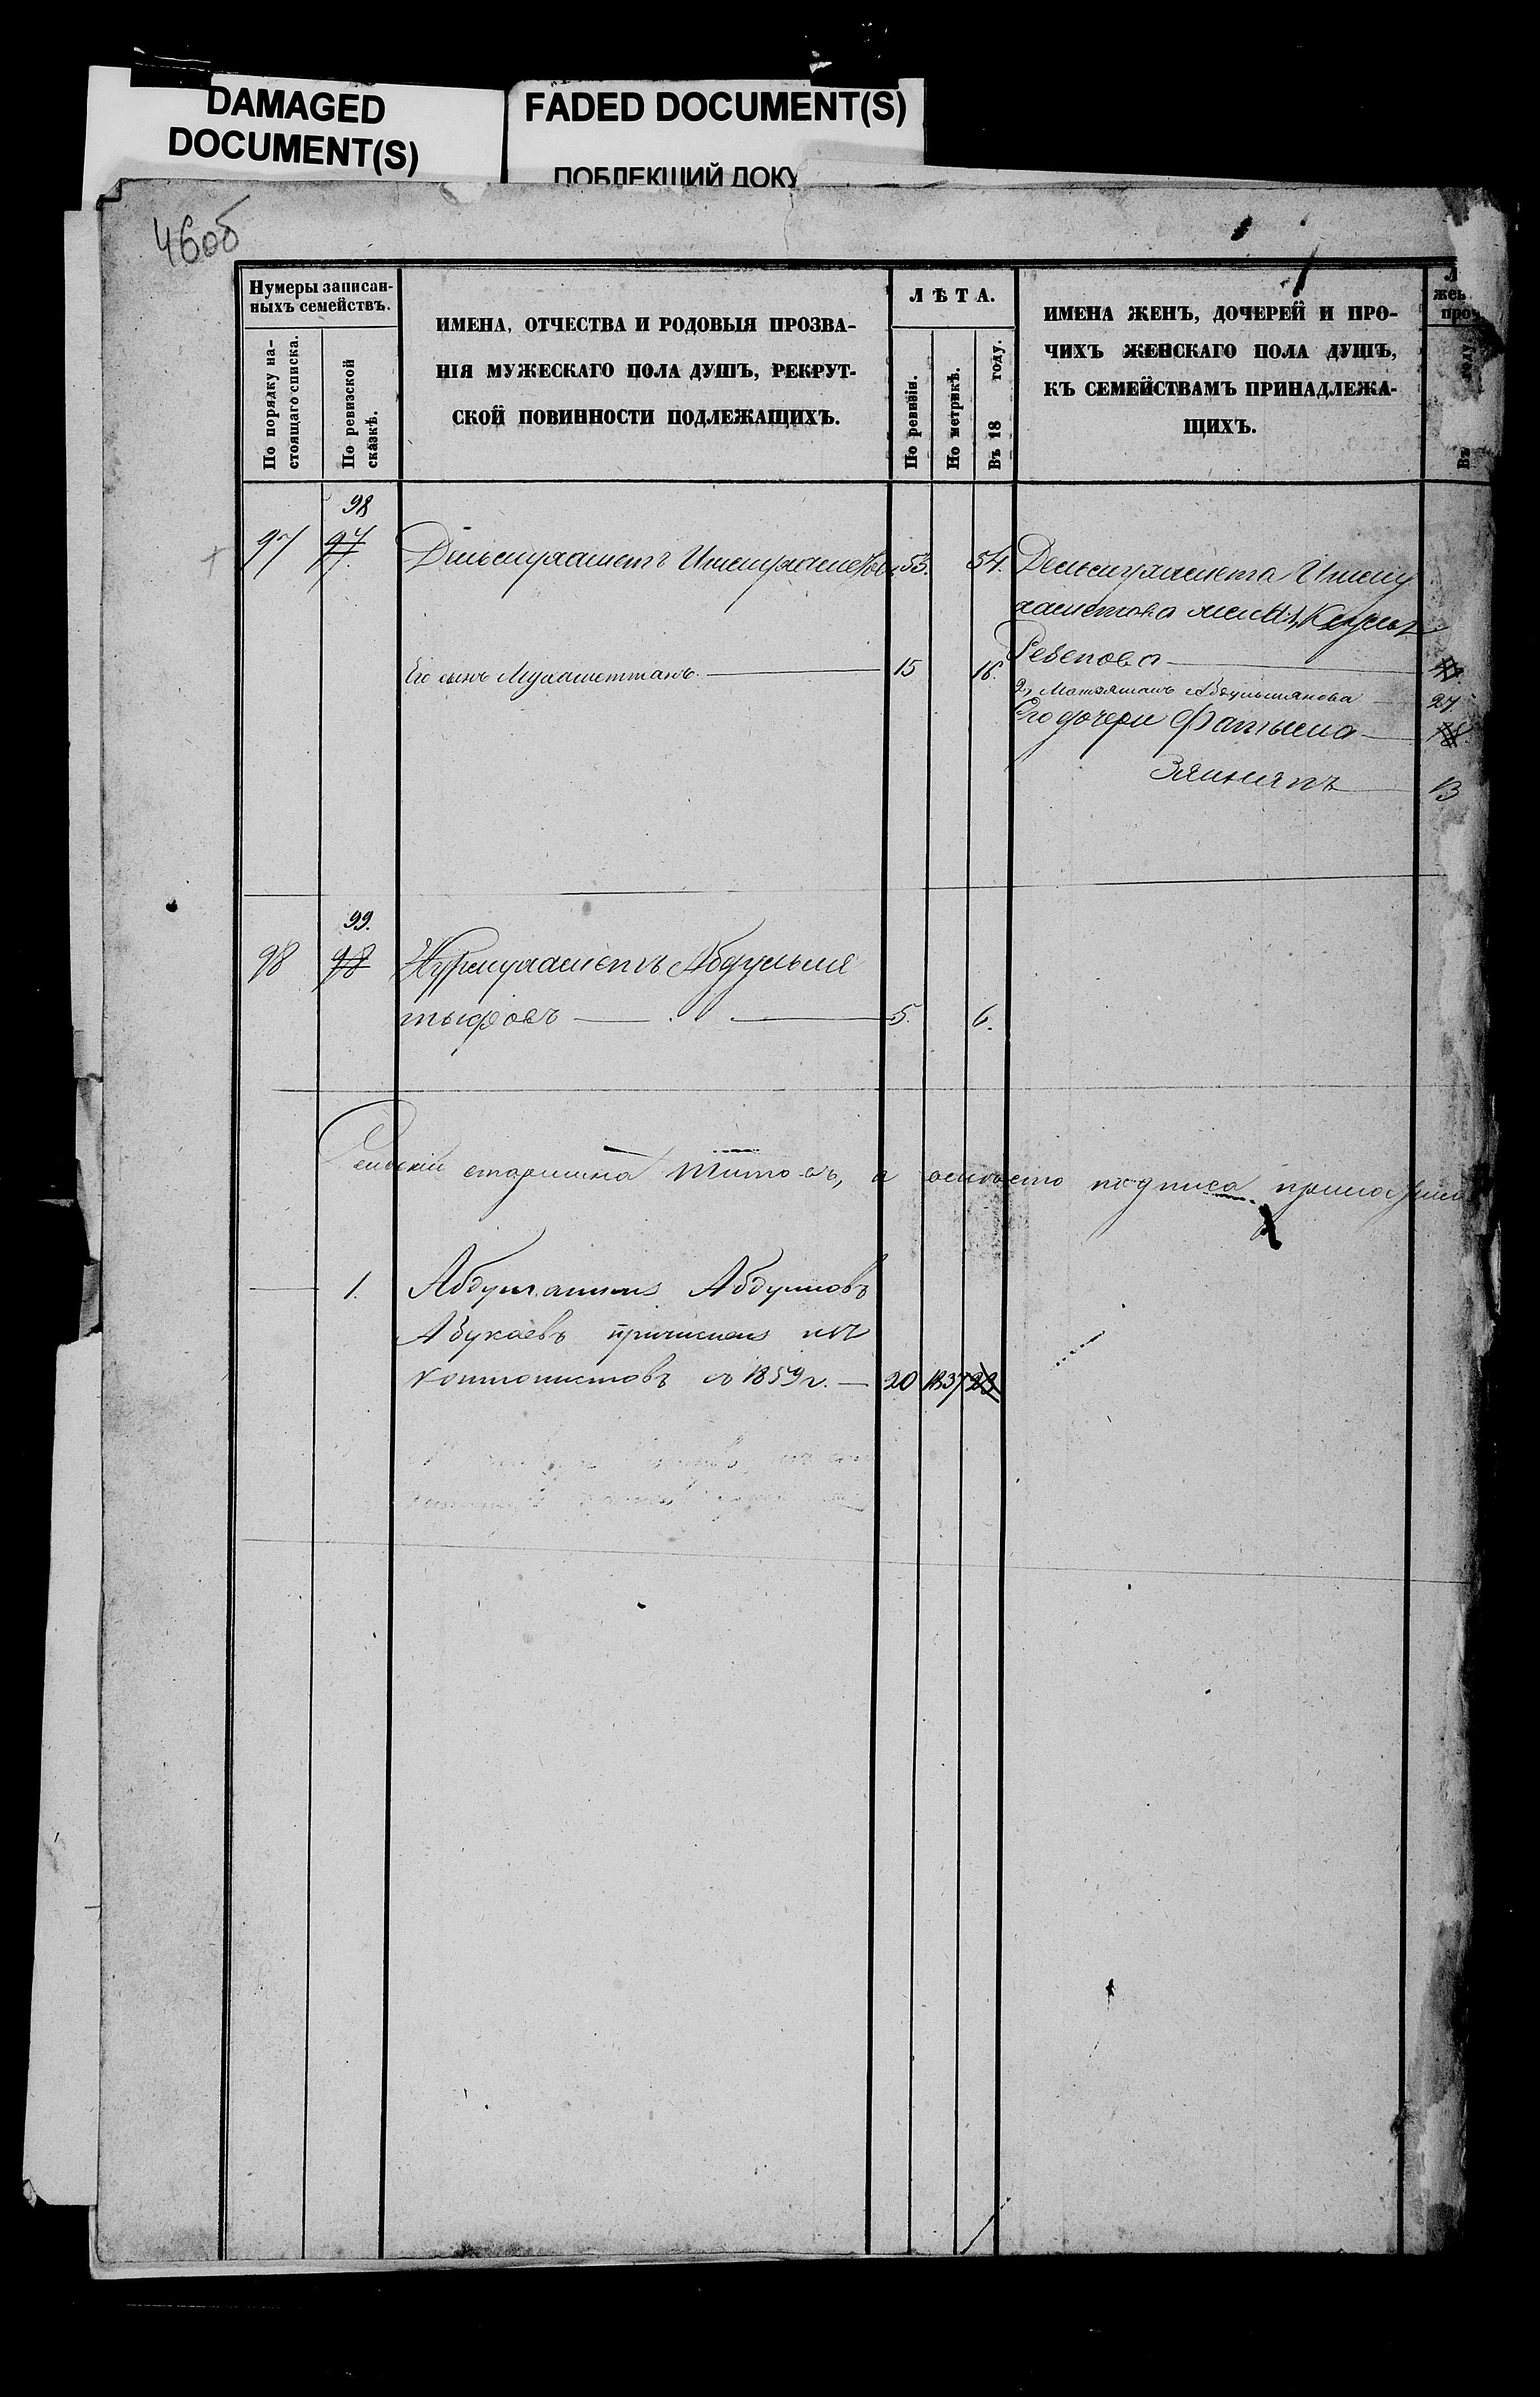 DAMAGED
DOCUMENT(S)
FADED DOCUMENT(S)
ПОБЛЕКШИЙ ДОКУ
46об
Нумеры записан-
ныхъ семействъ.
По порядку на-
стоящаго списка.
По ревизской
сказкѣ.
ИМЕНА, ОТЧЕСТВА И РОДОВЫЯ ПРОЗВА-
НІЯ МУЖЕСКАГО ПОЛА ДУШЪ, РЕКРУТ-
СКОЙ ПОВИННОСТИ ПОДЛЕЖАЩИХЪ.
ЛѢТА.
По ревизіи.
По метрикѣ.
Въ 18 году.
ИМЕНА ЖЕНЪ, ДОЧЕРЕЙ И ПРО-
ЧИХЪ ЖЕНСКАГО ПОЛА ДУШЪ,
КЪ СЕМЕЙСТВАМЪ ПРИНАДЛЕЖА-
ЩИХЪ.
Л
жен
проч
Въ году
98
97 97. Дельмухаметъ Ишмухаметовъ 53. 54. Дельмухамета Ишму
хаметова жена 1,
Ребепова
Его сынъ Мухаметтанъ 15 16.
2, Абдульманова 27.
Его дочери Фатыма
13
99.
98 98 Нурмухаметъ Абдульме
тыковъ 5. 6.
Сельскій старшина Титовъ, а вместо подписа приложилъ
1. Абдулганы Абдуловъ
Абукаевъ причисленъ изъ
кантонистовъ съ 1859 г. 20 1837 23